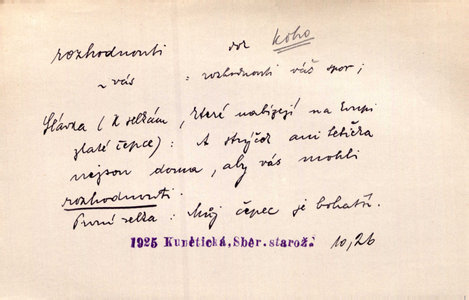 rozhodnouti dok koho
~ vás : rozhodnouti váš spor;
Slávka (k selkám, které nabízejí na kupi
zlaté čepce): A strýček ani tetička
nejsou doma, aby vás mohli
rozhodnouti.
První selka: Můj čepec je bohatší.
1925 Kunětická, Sběr. starož. 10, 26